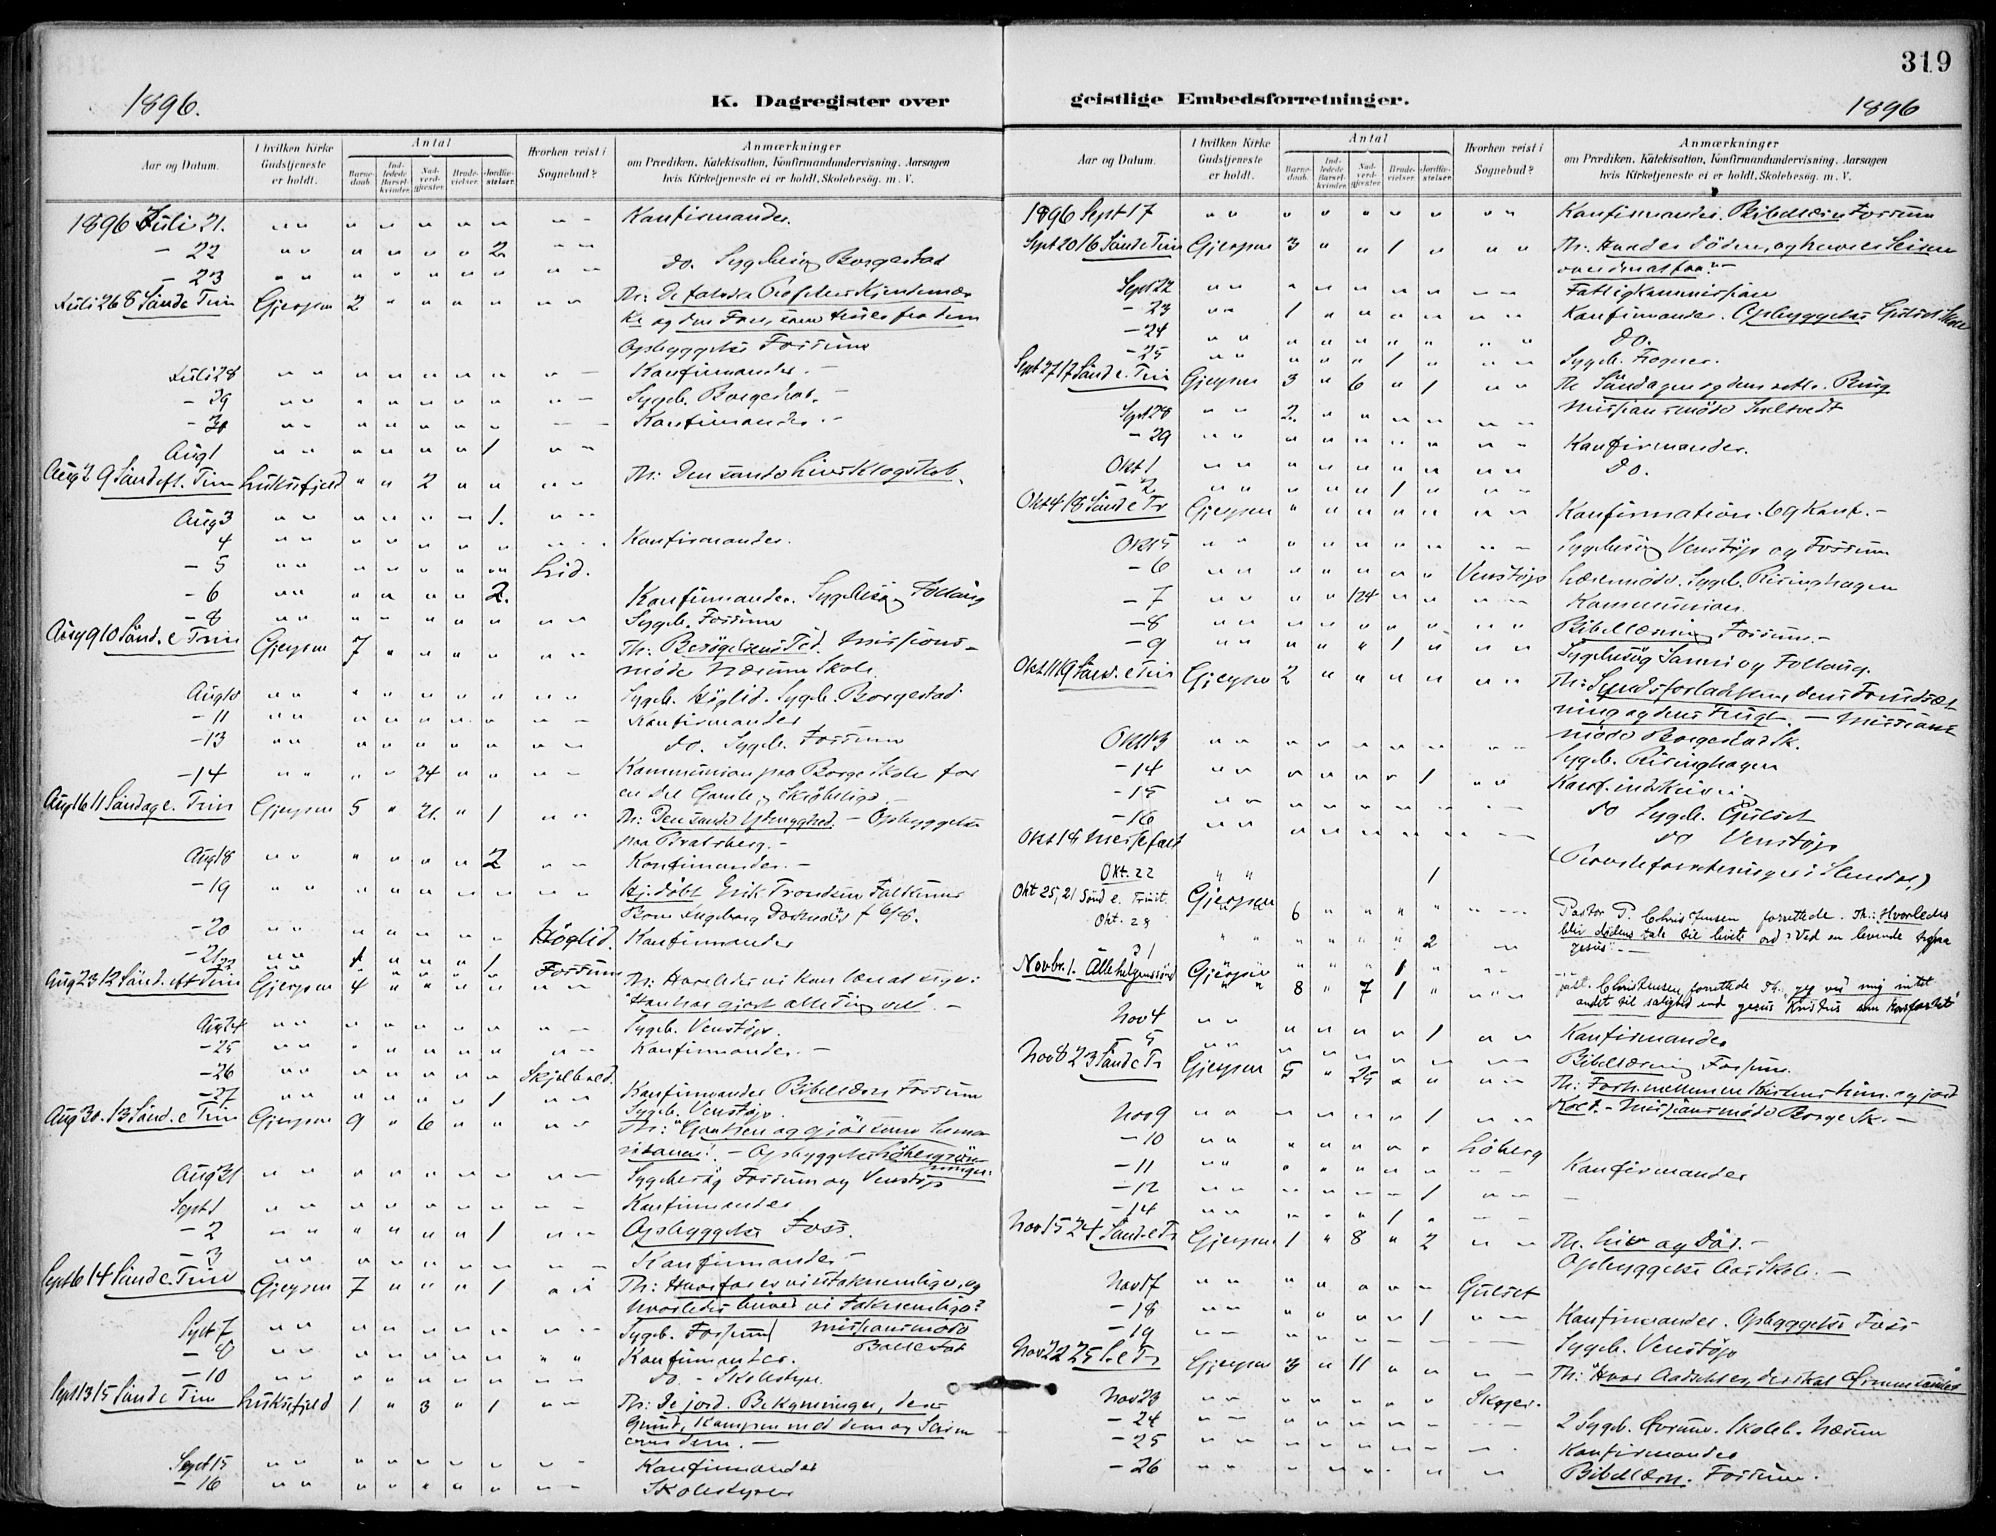 319
1896.
K. Dagregister over
geistlige Embedsforretninger.
1896
Aar og Datum.
I hvilken Kirke Gudstjeneste er holdt.
Antal
Barnedaab.
Indledede Barselkvinder.
Nadverdgjæster.
Brudevielser.
Jordfæstelser.
Hvorhen reist i Sognebud?
Anmærkninger
om Prædiken, Katekisation, Konfirmandundervisning, Aarsagen
hvis Kirketjeneste ei er holdt, Skolebesøg, m. V.
1896 Juli 21. " " " " " " " " " Konfirmander.
- 22 " " " " " " 2 " "
- 23 " " " " " " " " " do. Sygebesøg Borgestad
Juli 26 8 Sønd e Trin Gjerpen 2 " " " " " " Th: De falske Profeters Kjendemær
ke og den Fare, som truer fra dem
Opbyggelse Fossum
Juli 28 " " " " " " " " " Konfirmander. -
- 29 " " " " " " " " " Sygeb. Borgestad. -
- 30 " " " " " " " " " Konfirmander. -
Aug 1 " " " " " " 1 " "
Aug 2 9 Sønd eft. Trin Luksefjeld " " 2 " " " " Th: Den sande Livsklogskab.
Aug 3 " " " " " " 1. " "
4 " " " " " " " " " Konfirmander.
- 5 " " " " " " " Lid.
- 6 " " " " " " 2. Konfirmander. Sygebesøg Follaug
- 8 " " " " " " " Sygeb. Fossum
Aug 9 10 Sønd. e Trin Gjerpen 7 " " " " " " Th: Besøgelsens Tid. Missions-
møde Nærum Skole.
Aug 10 " " " " " " " " " Sygeb. Høglid. Sygeb. Borgestad.
- 11 " " " " " " " " " Konfirmander
- 13 " " " " " " " " " do. Sygeb. Fossum
- 14 " " " " 24 " " " " Kommunion paa Borge Skole for
en Del Gamle, Skrøbelige -
Aug 16 11 Søndag e. Trin Gjerpen 5 " 21. " 1 " " Th: Den sande Ydmyghed. - Opbyggelse
paa Bratsberg. -
Aug 18 " " " " " " 2 " " Konfirmander. -
- 19 " " " " " " " " " Hj.døbt
- 20 " " " " " " " Høglid. Konfirmander
- 21 " " 1 " " " 1 Fossum
Aug 23 12 Sønd. eft Trin Gjerpen 4 " " " " " " Th: Hvorledes vi kan lære at sige:
"Han har gjort alle Ting vel". -
Aug 24 " " " " " " " " " Sygeb. Venstøp.
- 25 " " " " " " " " " Konfirmander. -
- 26 " " " " " " " Skjelbred.
- 27 " " " " " " 1 " " Konfirmander Bibellæsn Fossum
Sygeb. Venstøp.
Aug 30. 13 Sønd. e Trin Gjerpen 9 " 6 " " " " Th:
- Opbyggelse
Aug 31 " " " " " " " " " Sygebesøg Fossum og Venstøp
Sept 1 " " " " " " " " " Konfirmander
- 2 " " " " " " 1 " " Opbyggelse Foss.
- 3 " " " " " " " " " Konfirmander -
Sept 6 14 Sønd e Trin Gjerpen 7 " " " 1 " " Th: Hvorfor er vi utaknemlige, og
hvorledes bliver vi taknemlige?
Sept 7 " " " " " " " " " Sygeb. Fossum Missionsmøde
- 8 " " " " " " " " " Konfirmander.
- 10 " " " " " " " " " do. - Skolestyre
Sept 13 15 Sønd e Trin Luksefjeld 1 " 3 " 1 " " Th: De jord. Bekymringer, deres
Grund, Kampen med dem og Seiren
over dem. -
Sept 15 " " " " " " " " " Konfirmander
- 16 " " " " " " " " " Skolestyre
Aar og Datum.
I hvilken Kirke Gudstjeneste er holdt.
Antal
Barnedaab.
Indledede Barselkvinder.
Nadverdgjæster.
Brudevielser.
Jordfæstelser.
Hvorhen reist i Sognebud?
Anmærkninger
om Prædiken, Katekisation, Konfirmandundervisning, Aarsagen
hvis Kirketjeneste ei er holdt, Skolebesøg, m. V.
1896 Sept 17 " " " " " " " " " Konfirmander. Bibellæsn Fossum
Sept 20 16 Sønd e Trin Gjerpen 3 " " 1 " " " Th: Hvad er Døden, og hvor er Seiren
over den at faa? -
Sept 22 " " " " " " " " " Fattigkommission
- 23 " " 1 " " " " " " Konfirmander. Opbyggelse Gulset Skole
- 24 " " " " " " " " " Do.
- 25 " " " " " 1 " " " Sygeb. Fogner.
Sept 27 17 Sønd e. Trin Gjerpen 3 " 6 " 1 " " Th Søndagen og dens rette Brug
Sept 28 " " 2. " " " " " " Missionsmøde
- 29 " " " " " " " " " Konfirmander.
Okt 1 " " " " " " " " " Do.
- 2 " " " " " 1 " " "
Okt 4 18 Sønd e Tr Gjerpen " " " " " " " Konfirmation. 69 Konf. -
Okt 5 " " " " " " " " " Sygebesøg Venstøp og Fossum
- 6 " " " " " " " Venstøp Læsemøde. Sygeb. Risinghagen
- 7 " " " " 124 " " " " Kommunion.
- 8 " " " " " " " " " Bibellæsning Fossum. -
- 9 " " " " " 1 " " " Sygebesøg Sanni og Follaug.
Okt 11 19 Sønd. e Trin Gjerpen 2 " " " " " " Th: Syndsforladelsen, dens Forudsæt
ning og dens Frugt. - Missions
møde Borgestad Sk.
Okt 13 " " " " " " " " " Sygeb. Risinghagen
- 14 " " " " " " 1 " " Konf. indskrivning
- 15 " " " " " " " " " do Sygeb. Gulset
- 16 " " " " " " " " " do Venstøp
Okt 18 Messefald (Provsteforretninger i Slemdal,)
Okt. 22 " " 1
Okt 25, 21 Sønd e. Trinit. Gjerpen 6 " " " " " " Pastor P. Chris Jensen forrettede. Th: Hvorledes
blir dødens tale til livets ord? Ved en levende
jesus. -
Okt. 28 " " " " " " 2 " "
31 " " " " " 1 " " "
Novbr. 1. Allehelgenssønd Gjerpen 8 " 7 1 " " " past. Christensen forrettede Th. jeg vil mig intet
andet til salighed end jesus Kristus som korsfæstet
Nov 4 " " " " " " 1 " " Konfirmander
- 5 " " " " " " " " " Bibellæsning Fossum.
Nov 8 23 Sønd e Tr Gjerpen 5 " 25 " " " " Th: Forh. mellem en Kristens him. og jord
Kald. - Missionsmøde Borge Sk. -
Nov 9 " " " " " " 1 " "
- 10 " " " " " " " Løberg
- 11 " " " " " " " " " Konfirmander
- 12 " " " " " " 1 " " -
- 14 " " " " " 1 " " "
Nov 15 24 Sønd e Tr Gjerpen 1 " 8 " 2 " " Th. Liv og Død. -
Opbyggelse Aas Skole. -
Nov 17 " " " " " " " Gulset
- 18 " " " " " " 1 " " Konfirmander. Opbyggelse Foss
- 19 " " " " " " " " " Sygeb. Venstøp
Nov 22 25 S. e Tr Gjerpen 3 " 11 " " " " Th: "Hvor Aadselet er, der skal Ørnene samles
Nov 23 " " " " " " "
- 24 " " " " " " " " " 2 Sygeb. Skoleb. Nærum
- 25 " " " " " " " " " Konfirmander
- 26 " " " " " " " " " Bibellæsn. Fossum.